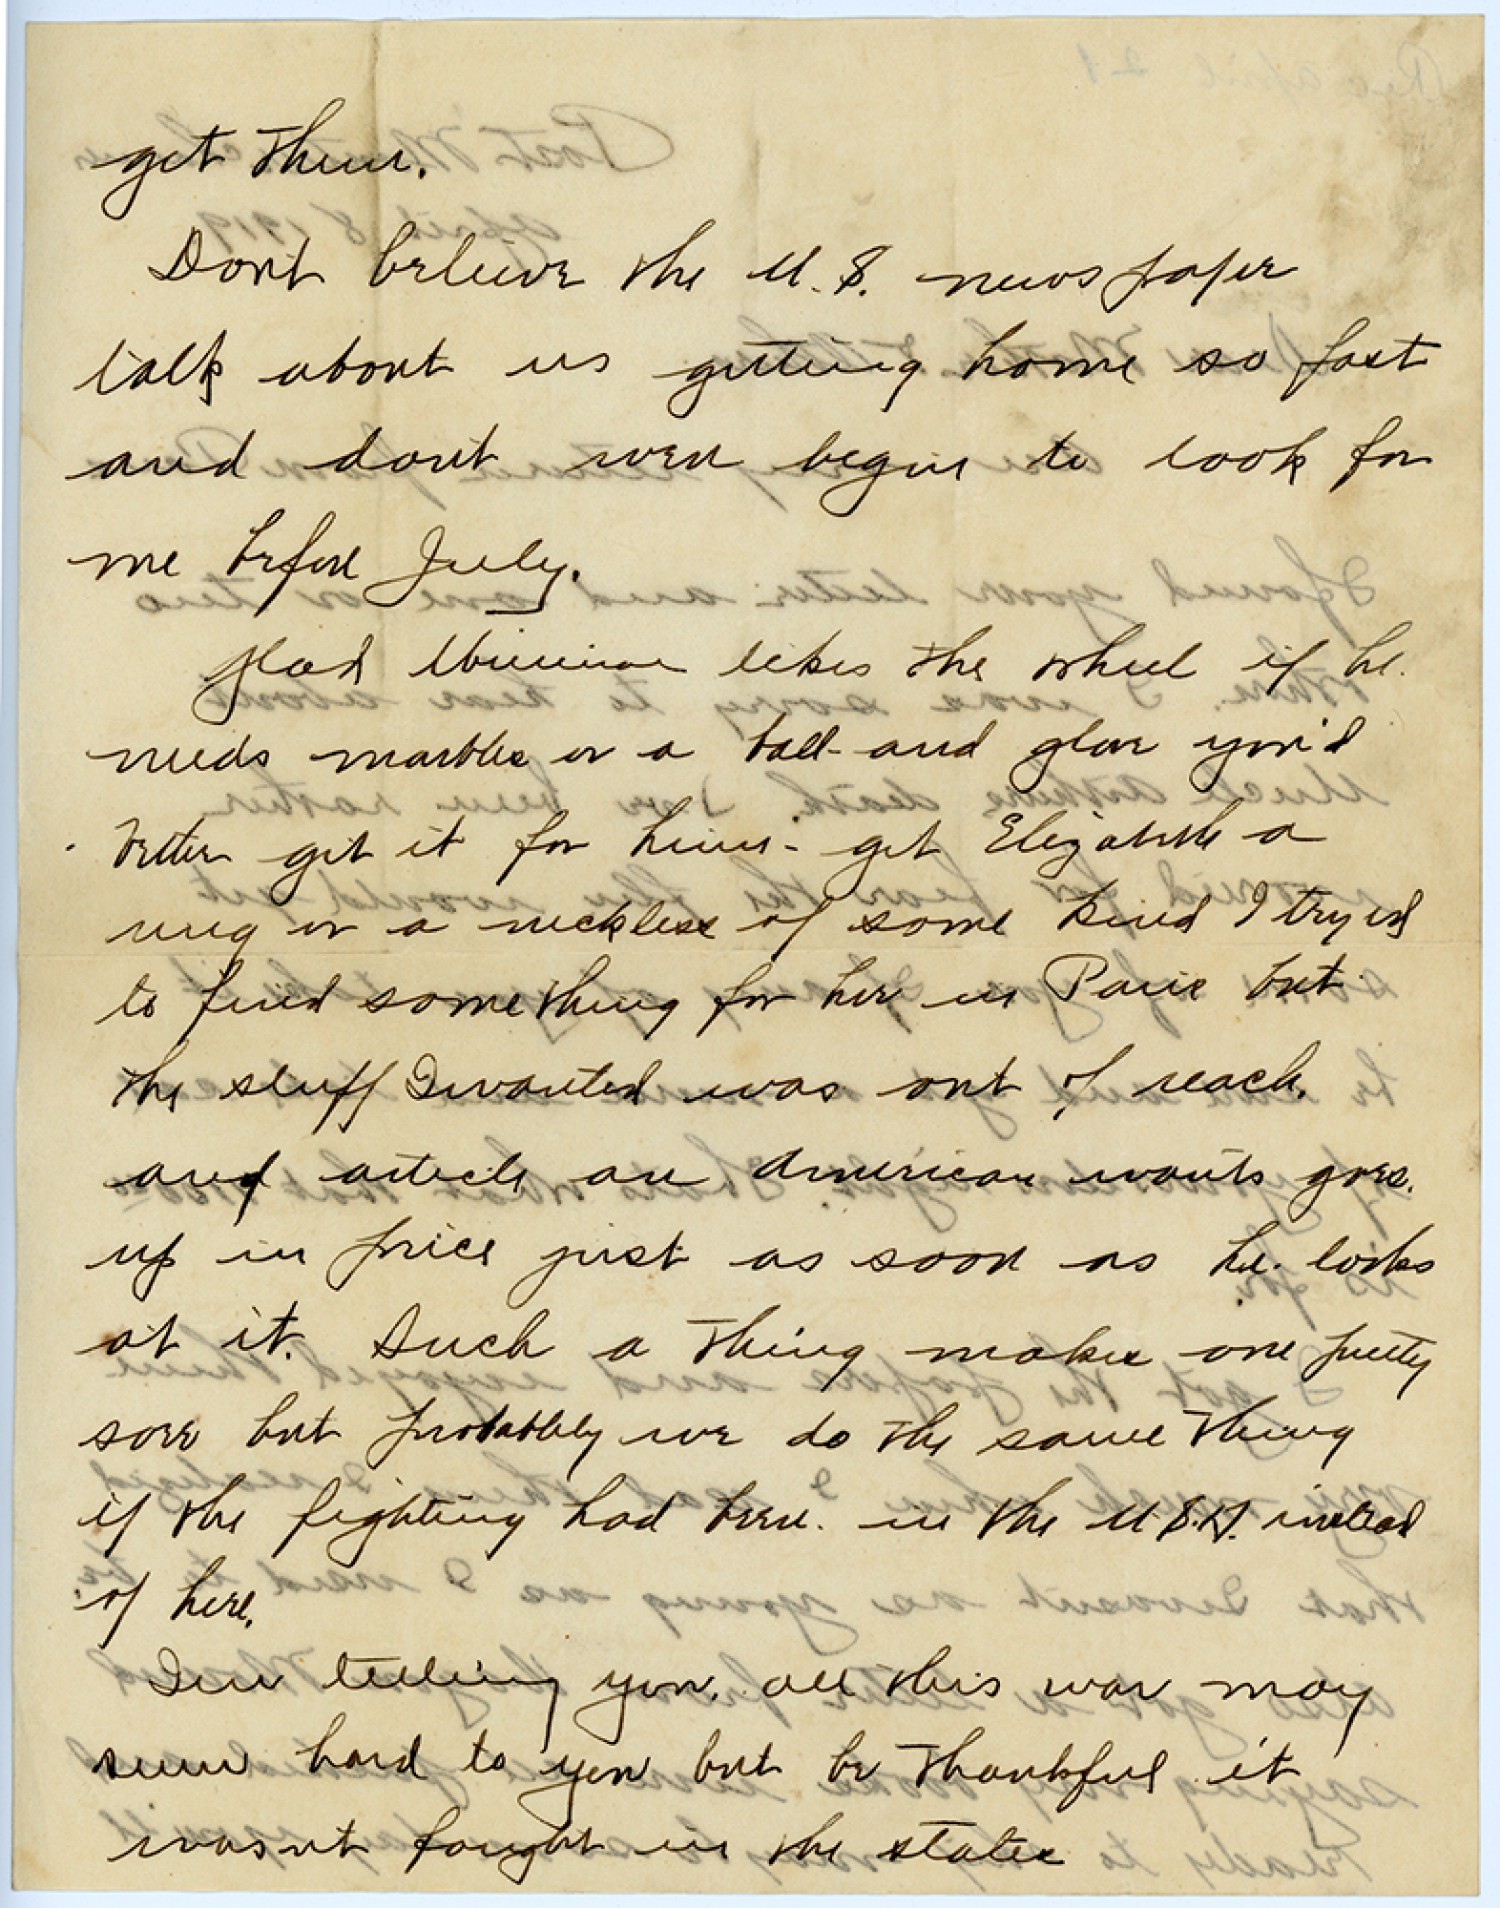 get them.
Dont believe the U.S. newspaper
talk about us getting home so fast
and dont even begin to look for
me before July.
Glad likes the wheel if he
needs marbles or a ball and glove you'd
better get it for him - get Elizabeth a
ring or a neckless of some kind I tryed
to find something for her in Paris but
the stuff I wanted was out of reach.
any article an American wants goes
up in price just as soon as he looks
at it. Such a thing makes one pretty
sore but probably we do the same thing
if the fighting had been in the U.S.A. instead
of here.
Im telling you. all this war may
seem hard to you but be thankful it
wasnt fought in the states